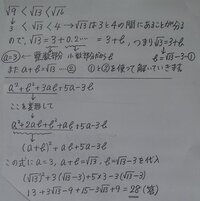 √9 < √13 < √16
3 < √13 < 4 → √13は3と4の間にあることが分か
るので、√13 = 3 + 0.2… = 3+b、つまり√13=3+b
a=3 ← 整数部分 小数部分から b=√13-3-①
また a+b=√13-② ①と②を使って解いていきます
a²+b²+3ab+5a-3b
ここを変形して
a²+2ab+b²+ab+5a-3b
(a+b)²+ab+5a-3b
この式に a=3, a+b=√13, b=√13-3を代入
(√13)²+3(√13-3)+5×3-3(√13-3)
13+3√13-9+15-3√13+9=28(答)